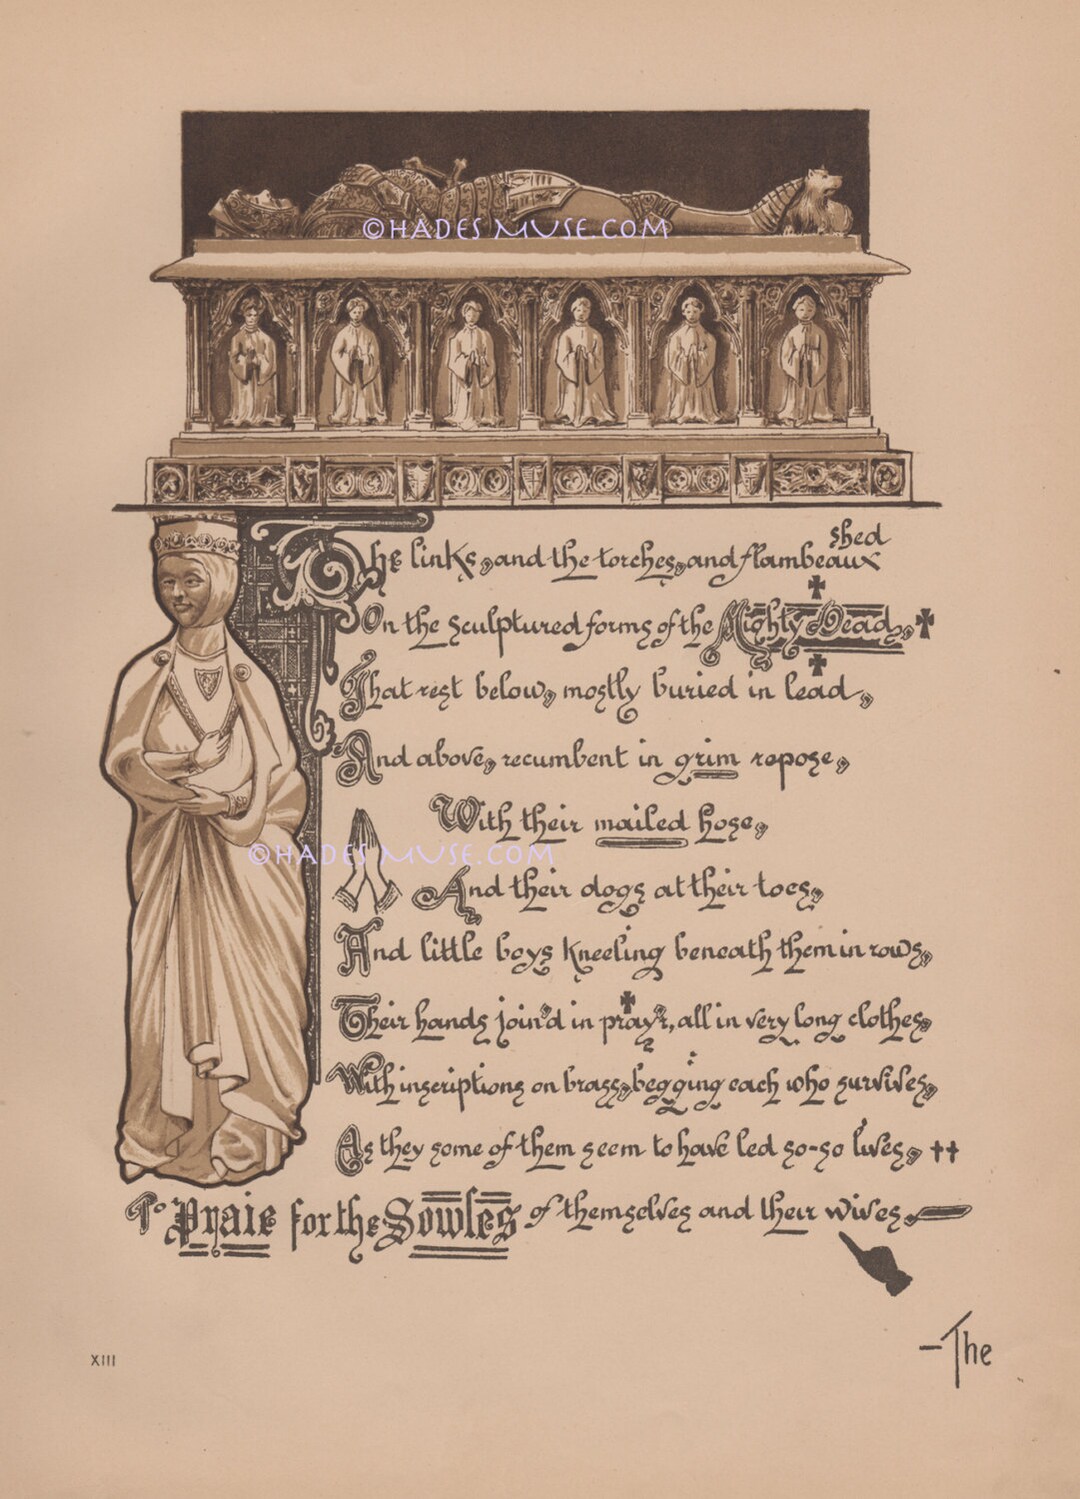 ©HADES MUSE.COM
The links, and the torches, and flambeaux shed
On the sculptured forms of the Mighty Dead,
That rest below, mostly buried in lead,
And above, recumbent in grim repose,
With their mailed hose,
©HADES MUSE.COM
And their dogs at their toes,
And little boys kneeling beneath them in rows,
Their hands join'd in pray'r, all in very long clothes,
With inscriptions on brass, begging each who survives,
As they some of them seem to have led so-so lives,
To Praie for the Sowles of themselves and their wives.
—The
XIII